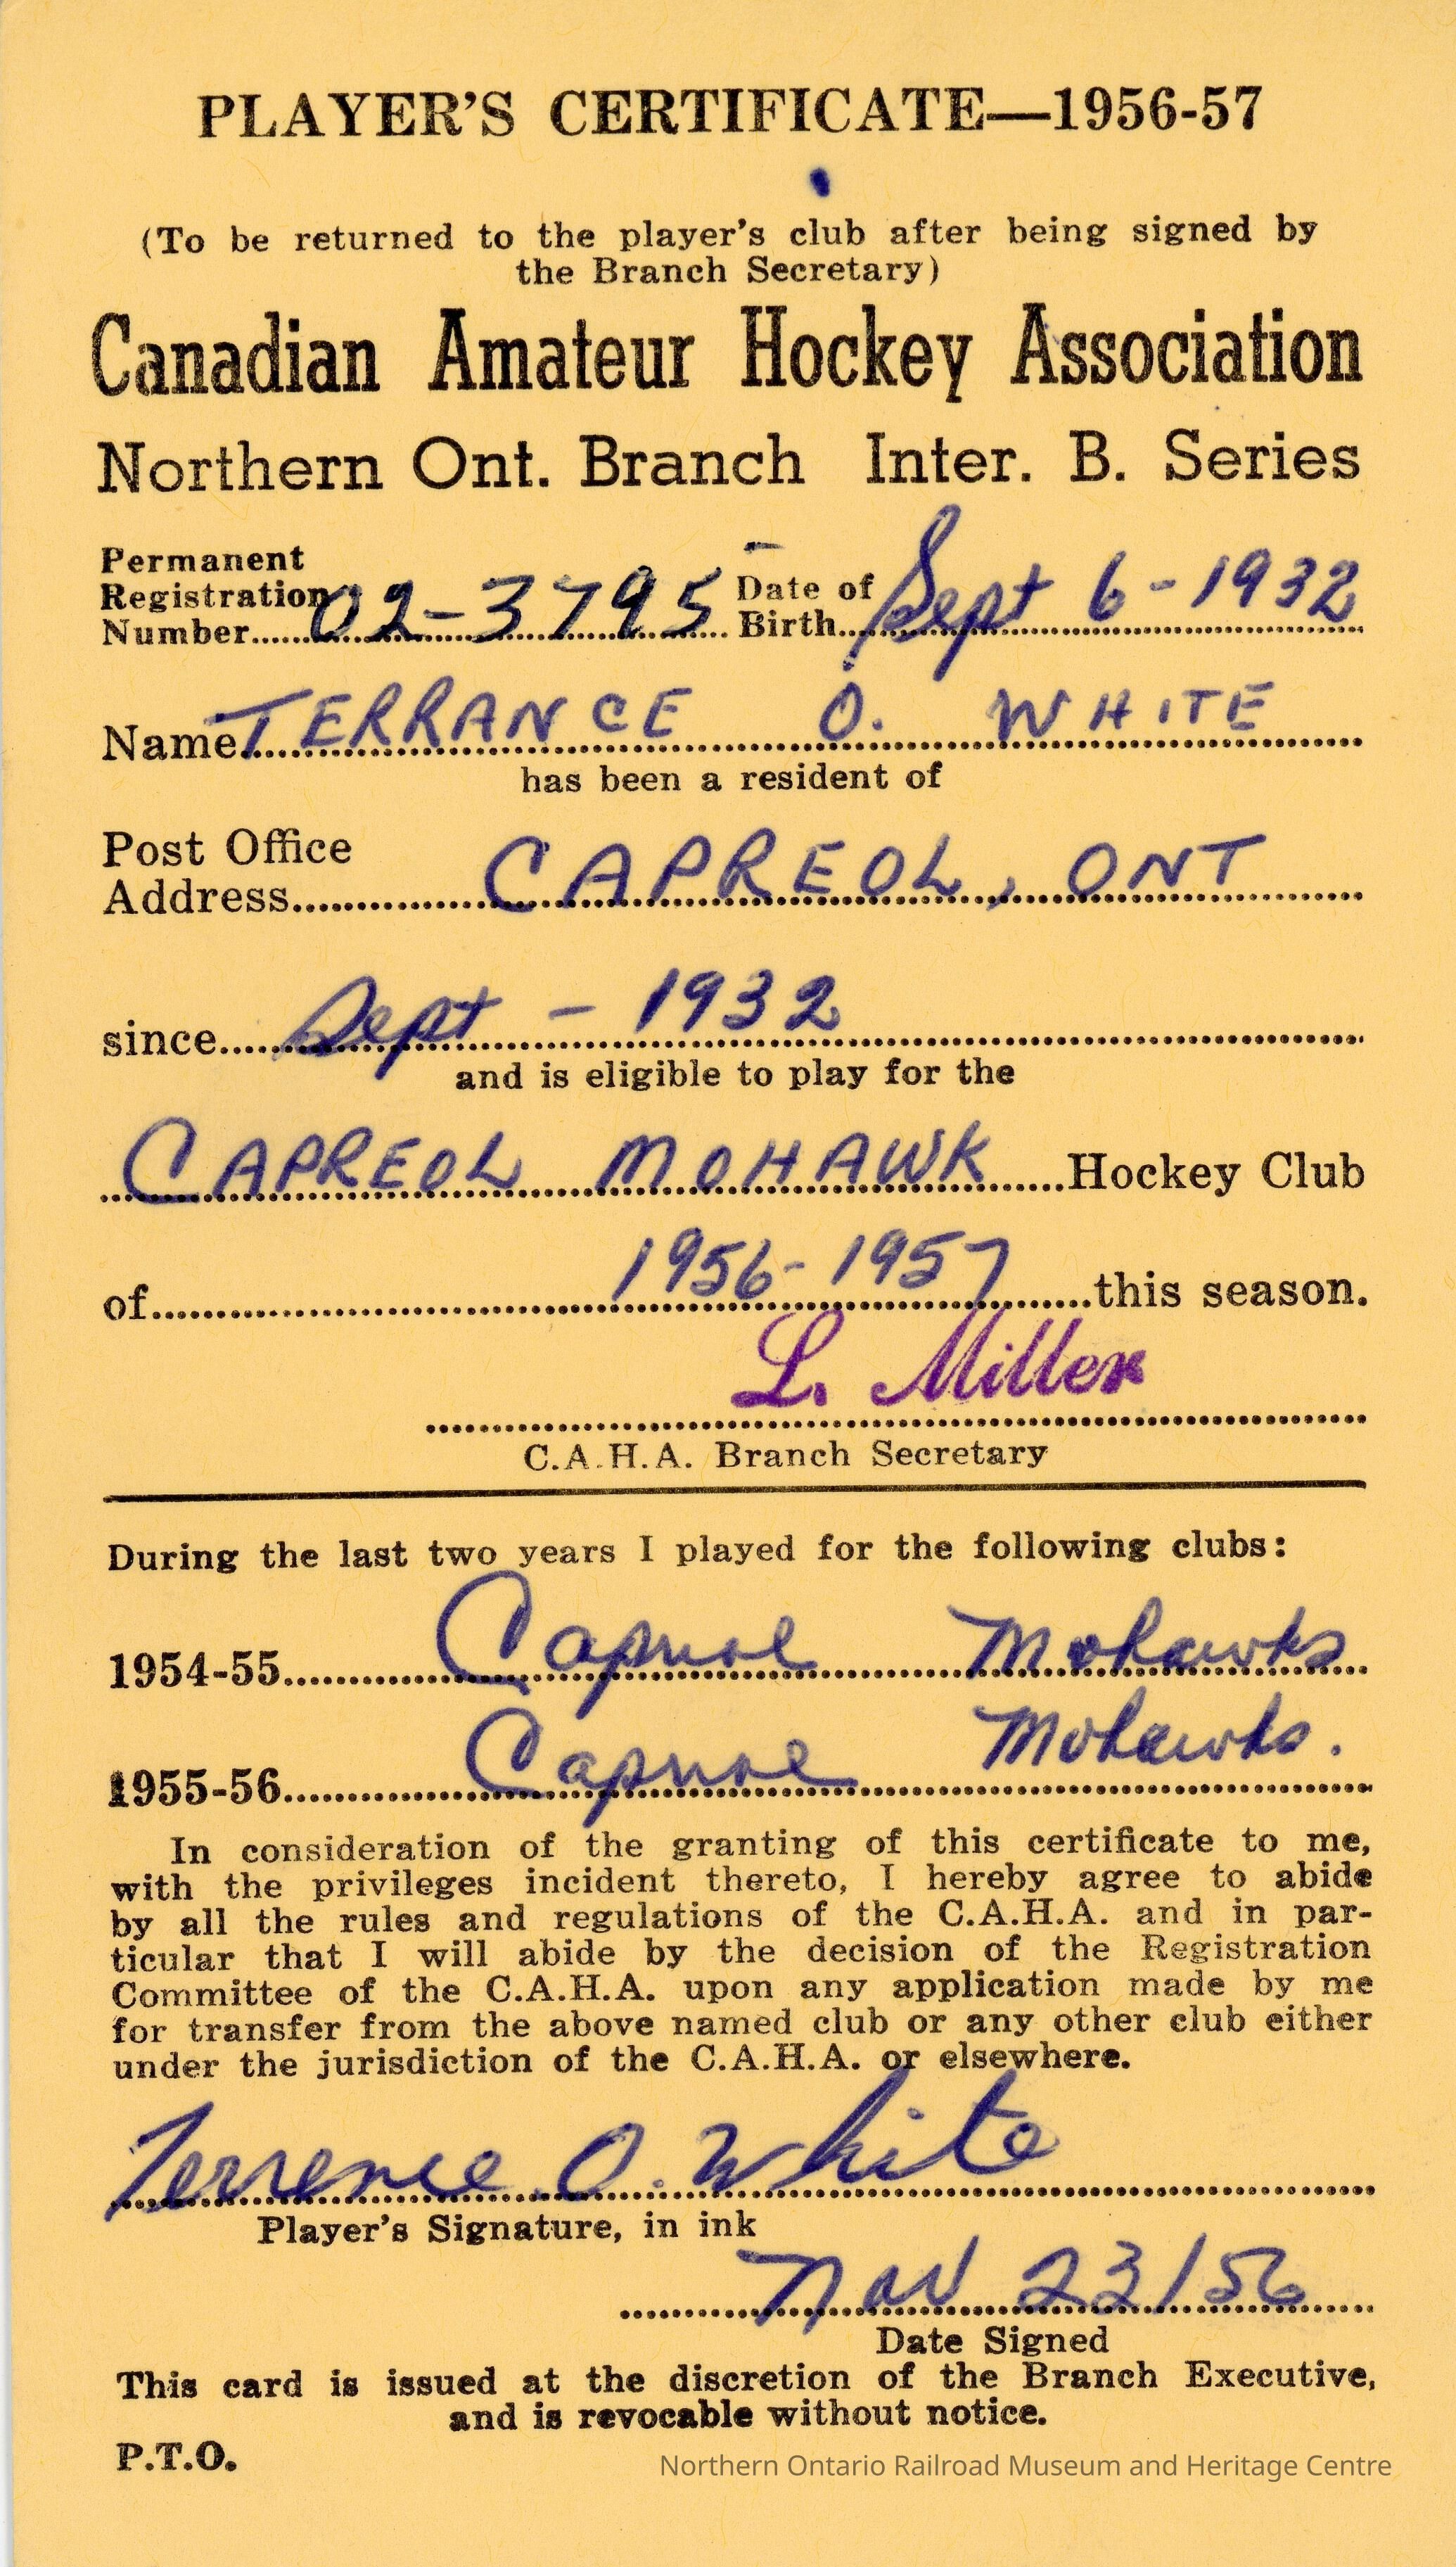 PLAYER'S CERTIFICATE—1956-57
(To be returned to the player's club after being signed by
the Branch Secretary)
Canadian Amateur Hockey Association
Northern Ont. Branch Inter. B. Series
Permanent
Registration
Number 02-3795 Date of Birth Sept 6-1932
Name TERRANCE O. WHITE
has been a resident of
Post Office
Address CAPREOL, ONT
since Sept - 1932
and is eligible to play for the
CAPREOL MOHAWK Hockey Club
of 1956-1957 this season.
L. Miller
C.A.H.A. Branch Secretary
During the last two years I played for the following clubs:
1954-55 Capreol Mohawks
1955-56 Capreol Mohawks.
In consideration of the granting of this certificate to me,
with the privileges incident thereto, I hereby agree to abide
by all the rules and regulations of the C.A.H.A. and in par-
ticular that I will abide by the decision of the Registration
Committee of the C.A.H.A. upon any application made by me
for transfer from the above named club or any other club either
under the jurisdiction of the C.A.H.A. or elsewhere.
Terrence O. White
Player's Signature, in ink
Nov 23/56
Date Signed
This card is issued at the discretion of the Branch Executive,
and is revocable without notice.
P.T.O.
Northern Ontario Railroad Museum and Heritage Centre